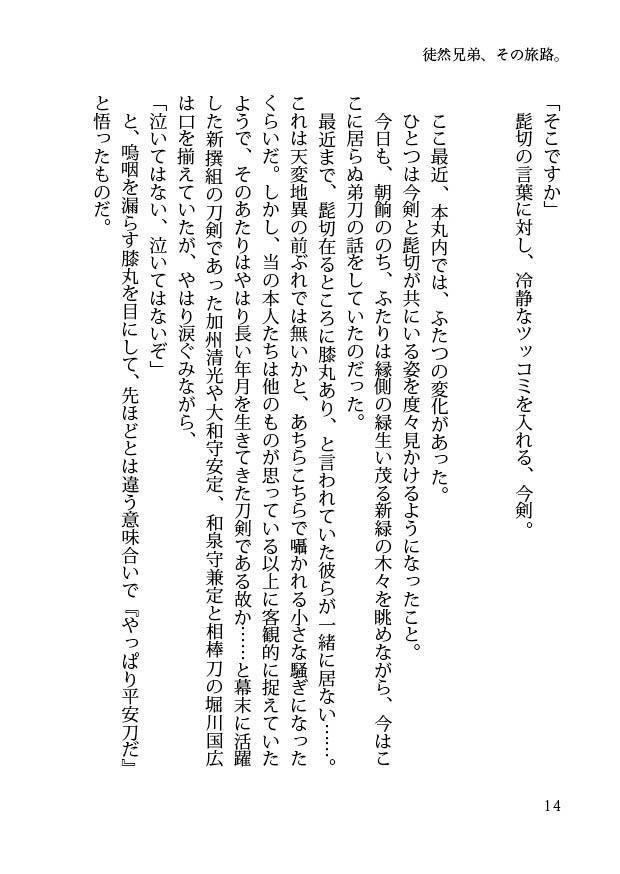 徒然兄弟、その旅路。
「そこですか」
髭切の言葉に対し、冷静なツッコミを入れる、今剣。
ここ最近、本丸内では、ふたつの変化があった。
ひとつは今剣と髭切が共にいる姿を度々見かけるようになったこと。
今日も、朝餉ののち、ふたりは縁側の緑生い茂る新緑の木々を眺めながら、今はこ
こに居らぬ弟刀の話をしていたのだった。
最近まで、髭切在るところに膝丸あり、と言われていた彼らが一緒に居ない……。
これは天変地異の前ぶれでは無いかと、あちらこちらで囁かれる小さな騒ぎになった
くらいだ。しかし、当の本人たちは他のものが思っている以上に客観的に捉えていた
ようで、そのあたりはやはり長い年月を生きてきた刀剣である故か……と幕末に活躍
した新撰組の刀剣であった加州清光や大和守安定、和泉守兼定と相棒刀の堀川国広
は口を揃えていたが、やはり涙ぐみながら、
「泣いてはない、泣いてはないぞ」
と、嗚咽を漏らす膝丸を目にして、先ほどとは違う意味合いで『やっぱり平安刀だ』
と悟ったものだ。
14